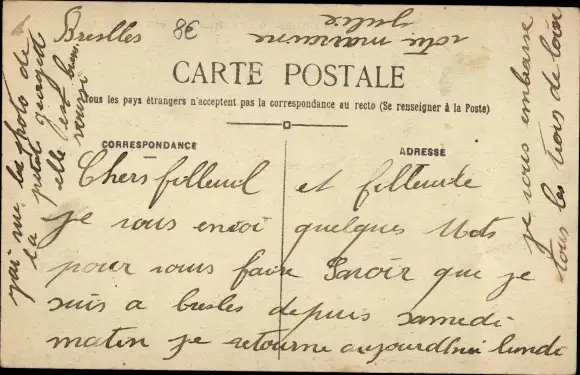 Breslles
8€
votre marraine
Julie
CARTE POSTALE
Tous les pays étrangers n'acceptent pas la correspondance au recto (Se renseigner à la Poste)
CORRESPONDANCE
ADRESSE
Chers filleuil et filleuide
je vous envoi quelques Mots
pour vous faire Savoir que je
suis a bresles depuis samedi
matin je retourne aujourd'hui lundi
j'ai vu la photo de
la petite
elle est bien
réussi
je vous embrasse
tous les trois de loin